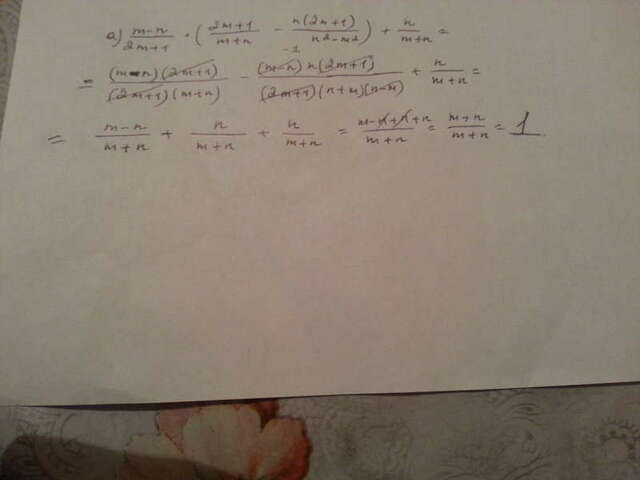 а) (m-n)/(2m+1) · ( (2m+1)/(m+n) - n(2m+1)/(n²-m²) ) + n/(m+n) =
= (m-n)(2m+1)/((2m+1)(m+n)) - (m-n)n(2m+1)/((2m+1)(n+m)(n-m)) + n/(m+n) =
= (m-n)/(m+n) + n/(m+n) + n/(m+n) = (m-n+n+n)/(m+n) = (m+n)/(m+n) = 1